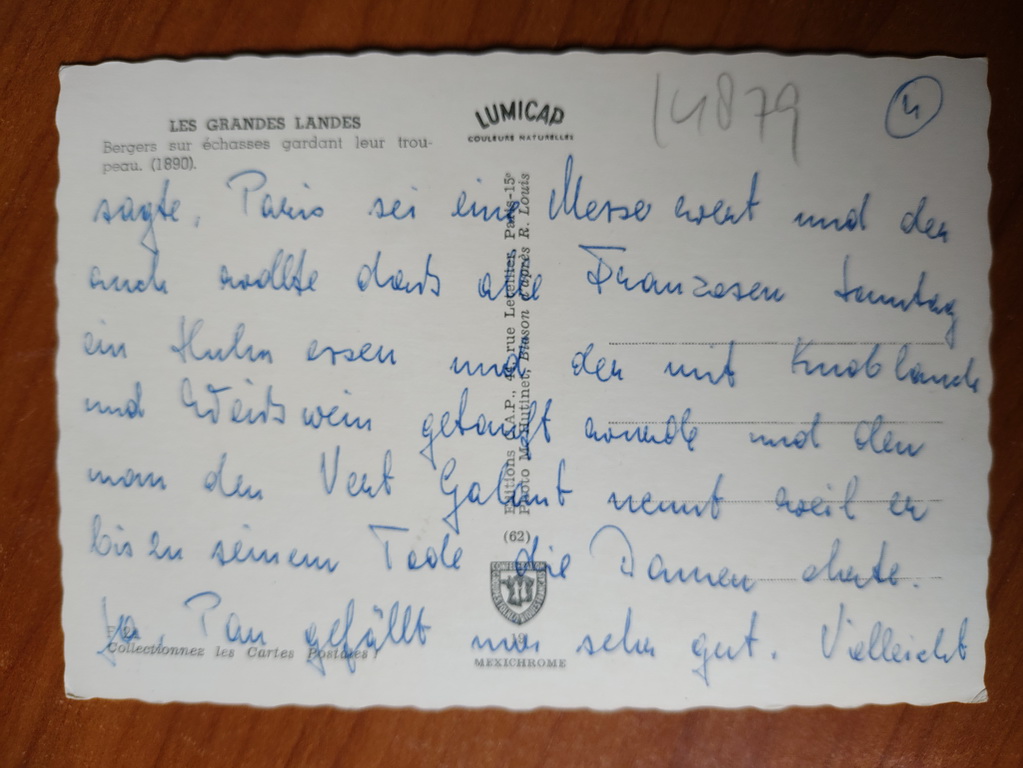 LES GRANDES LANDES
Bergers sur échasses gardant leur trou-
peau. (1890).
LUMICAP
COULEURS NATURELLES
14879
4
sagte, Paris sei eine Messe wert und der
auch wollte dass alle Franzosen Sonntag
ein Huhn essen und der mit Knoblauch
und Weisswein getauft wurde und den
man den Vert Galant nennt weil er
bis zu seinem Tode die Damen ehrte.
Ja, Pau gefällt mir sehr gut. Vielleicht
Editions C.A.P., rue Letellier, Paris-15e
Photo M. Hutinet, Blason d'après R. Louis
(62)
19
MEXICHROME
Collectionnez les Cartes Postales !